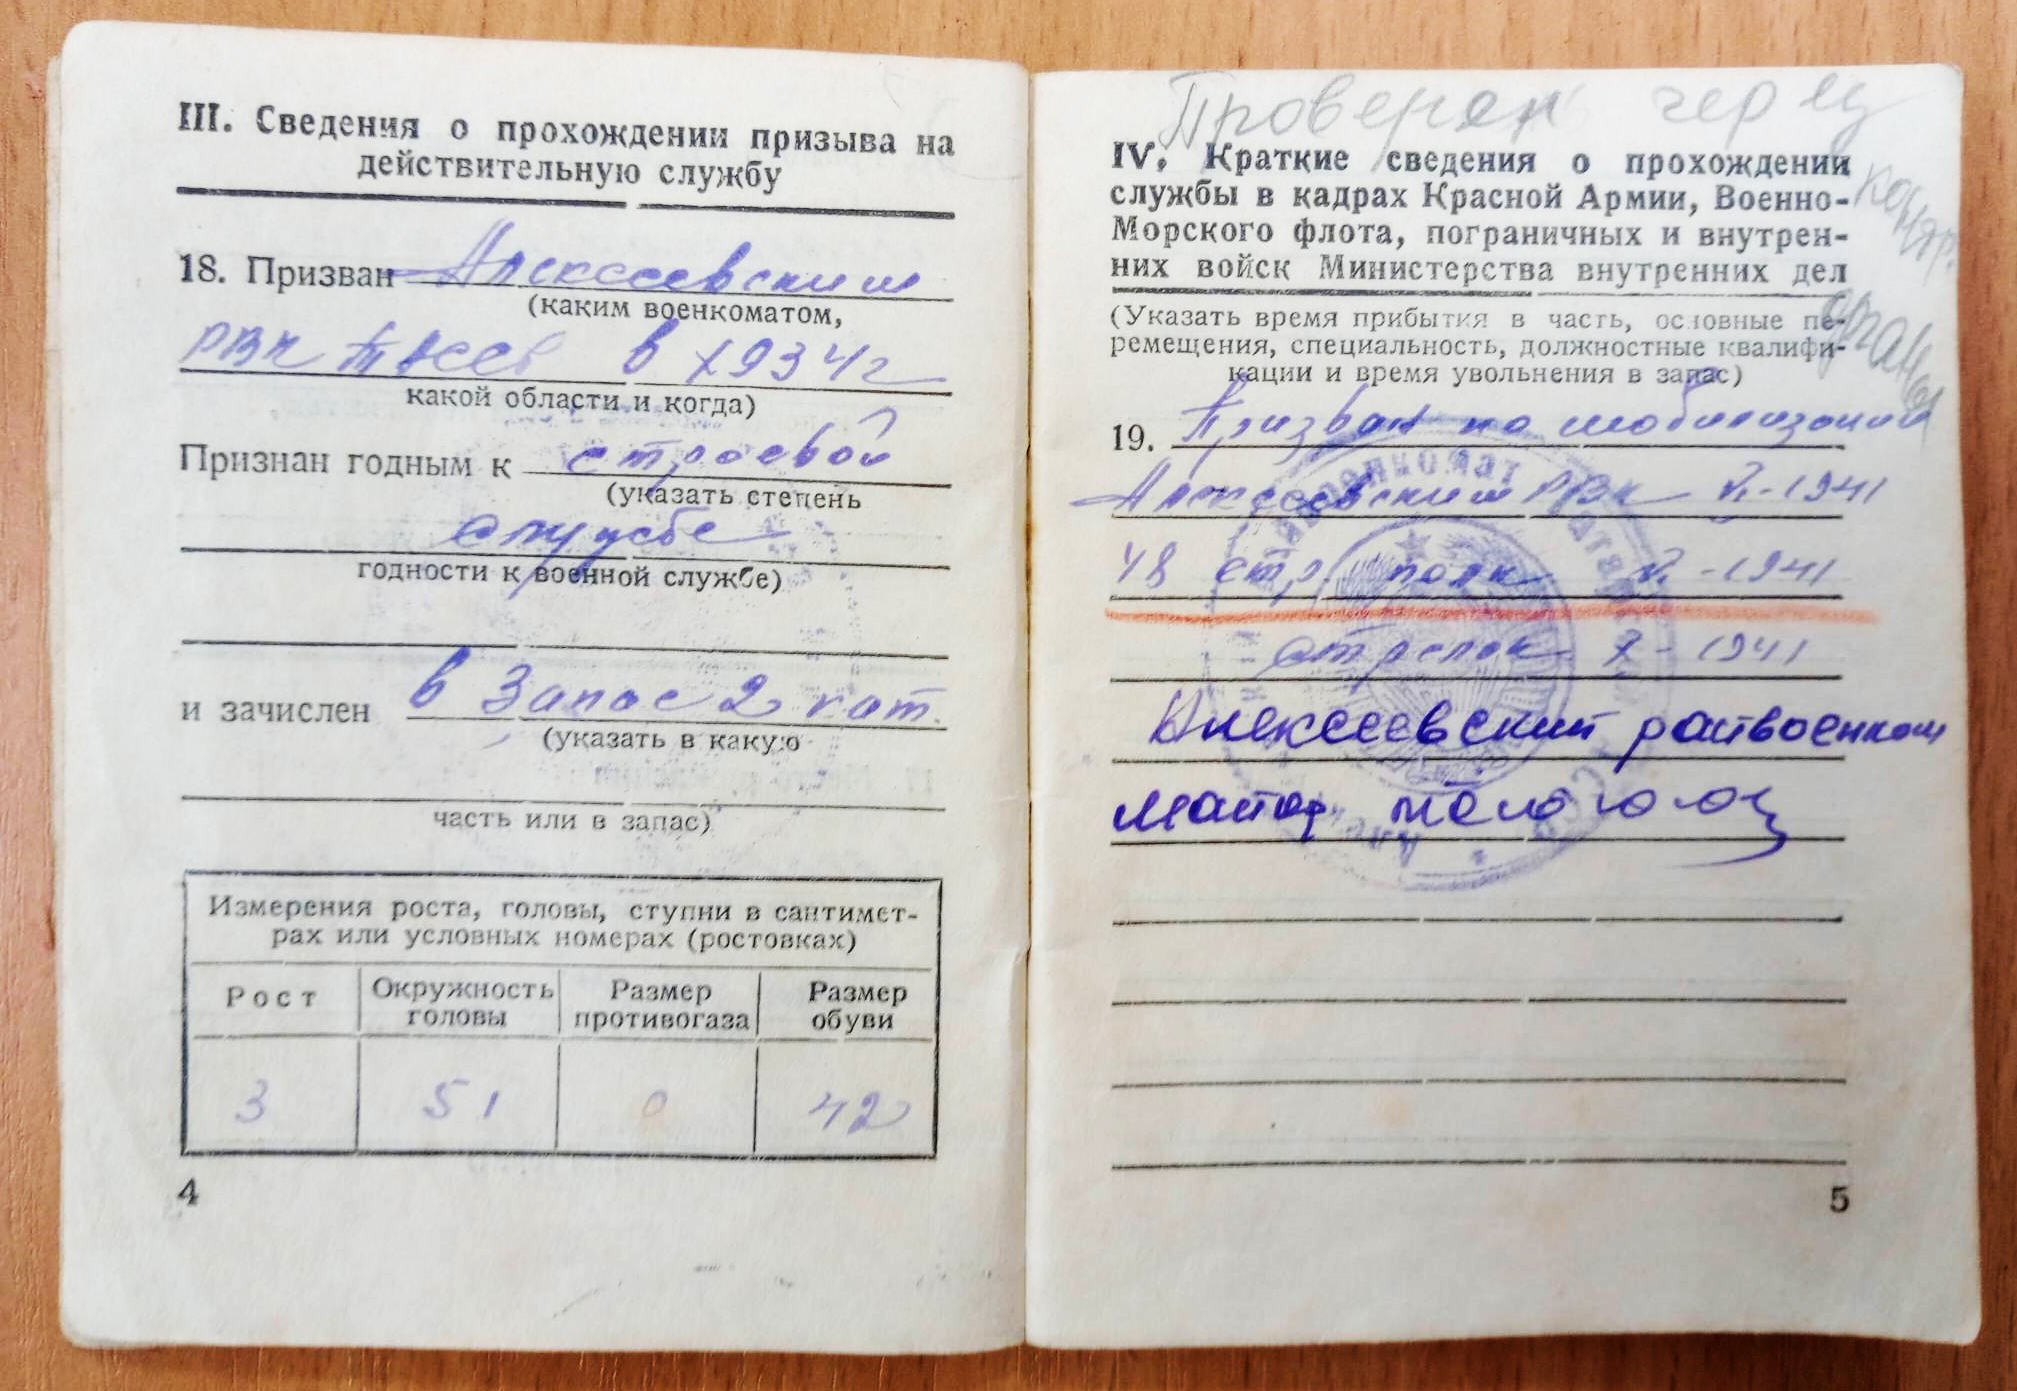 III. Сведения о прохождении призыва на
действительную службу
18. Призван Алексеевским
(каким военкоматом,
РВК в 1934г
какой области и когда)
Признан годным к строевой
(указать степень
службе
годности к военной службе)
и зачислен в запас 2 кат.
(указать в какую
часть или в запас)
Измерения роста, головы, ступни в сантимет-
рах или условных номерах (ростовках)
Рост
Окружность
головы
Размер
противогаза
Размер
обуви
3
51
0
42
4
Проверен через
контр.
органы
IV. Краткие сведения о прохождении
службы в кадрах Красной Армии, Военно-
Морского флота, пограничных и внутрен-
них войск Министерства внутренних дел
(Указать время прибытия в часть, основные пе-
ремещения, специальность, должностные квалифи-
кации и время увольнения в запас)
19. Призван по мобилизации
Алексеевским РВК VI-1941
48 стр. полк VI-1941
стрелок X-1941
Алексеевский райвоенком
майор
5